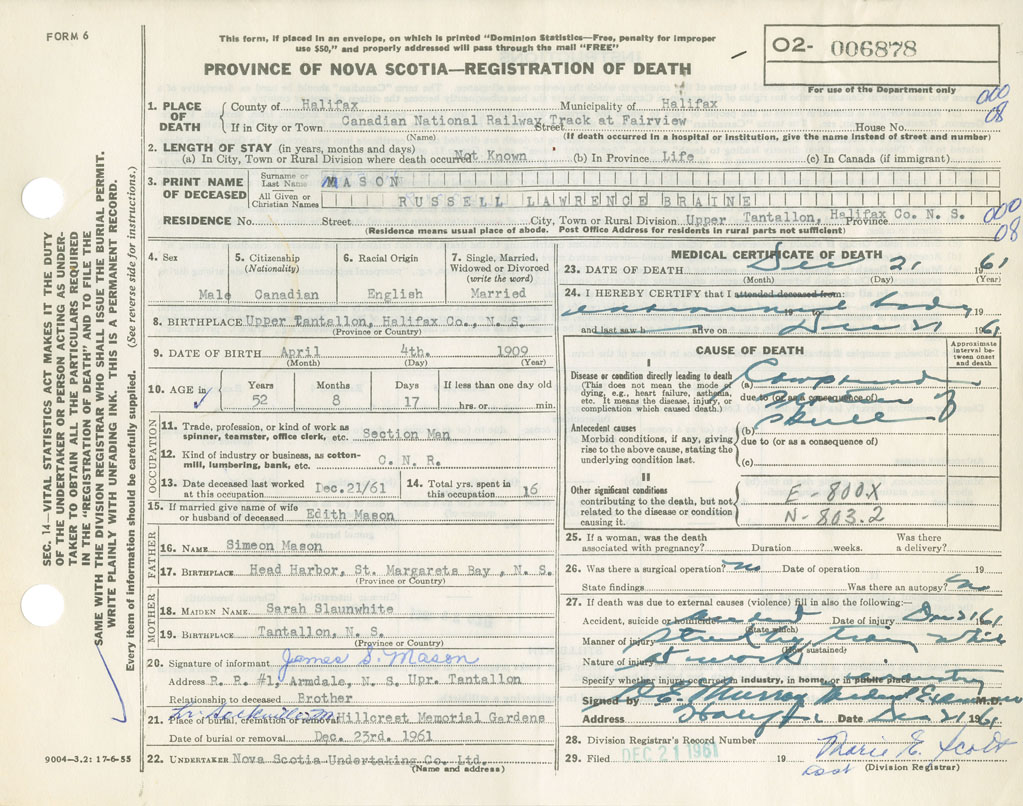 FORM 6
This form, if placed in an envelope, on which is printed "Dominion Statistics—Free, penalty for improper
use $50," and properly addressed will pass through the mail "FREE"
PROVINCE OF NOVA SCOTIA—REGISTRATION OF DEATH
02- 006878
For use of the Department only
000
08
1. PLACE OF DEATH
County of Halifax Municipality of Halifax
If in City or Town Canadian National Railway Track at Fairview Street House No.
(Name) (If death occurred in a hospital or institution, give the name instead of street and number)
2. LENGTH OF STAY (in years, months and days)
(a) In City, Town or Rural Division where death occurred Not Known (b) In Province Life (c) In Canada (if immigrant)
3. PRINT NAME OF DECEASED
Surname or Last Name MASON
All Given or Christian Names RUSSELL LAWRENCE BRAINE
RESIDENCE No. Street City, Town or Rural Division Upper Tantallon, Halifax Co. N. S. Province
(Residence means usual place of abode. Post Office Address for residents in rural parts not sufficient)
000
08
4. Sex
Male
5. Citizenship (Nationality)
Canadian
6. Racial Origin
English
7. Single, Married, Widowed or Divorced (write the word)
Married
8. BIRTHPLACE Upper Tantallon, Halifax Co., N. S.
(Province or Country)
9. DATE OF BIRTH April 4th. 1909
(Month) (Day) (Year)
10. AGE in Years Months Days If less than one day old
52 8 17 hrs. or min.
OCCUPATION
11. Trade, profession, or kind of work as
spinner, teamster, office clerk, etc. Section Man
12. Kind of industry or business, as cotton-
mill, lumbering, bank, etc. C. N. R.
13. Date deceased last worked at this occupation Dec.21/61
14. Total yrs. spent in this occupation 16
15. If married give name of wife
or husband of deceased Edith Mason
FATHER
16. NAME Simeon Mason
17. BIRTHPLACE Head Harbor, St. Margarets Bay , N. S.
(Province or Country)
MOTHER
18. MAIDEN NAME Sarah Slaunwhite
19. BIRTHPLACE Tantallon, N. S.
(Province or Country)
20. Signature of informant James S. Mason
Address R. R. #1, Armdale, N. S. Upr. Tantallon
Relationship to deceased Brother
21. Place of burial, cremation or removal Hillcrest Memorial Gardens
Date of burial or removal Dec. 23rd. 1961
22. UNDERTAKER Nova Scotia Undertaking Co. Ltd.
(Name and address)
MEDICAL CERTIFICATE OF DEATH
23. DATE OF DEATH Dec 21 1961
(Month) (Day) (Year)
24. I HEREBY CERTIFY that I attended deceased from:
examined body
19 to 19
and last saw h alive on Dec 21 1961
CAUSE OF DEATH
Approximate interval between onset and death
I
Disease or condition directly leading to death
(This does not mean the mode of
dying, e.g., heart failure, asthenia,
etc. It means the disease, injury, or
complication which caused death.)
(a) Compound
due to (or as a consequence of)
of
Antecedent causes
Morbid conditions, if any, giving
rise to the above cause, stating the
underlying condition last.
(b) Skull
due to (or as a consequence of)
(c)
II
Other significant conditions
contributing to the death, but not
related to the disease or condition
causing it.
E-800X
N-803.2
25. If a woman, was the death Was there
associated with pregnancy? Duration weeks. a delivery?
26. Was there a surgical operation? no Date of operation 19
State findings Was there an autopsy? no
27. If death was due to external causes (violence) fill in also the following:—
Accident, suicide or homicide Date of injury Dec 21 1961
(State which)
Manner of injury Struck by train while
(How sustained)
Nature of injury at work
Specify whether injury occurred in industry, in home, or in public place industry
Signed by D. E. Murray Medical Examiner M.D.
Address Halifax Date Dec 21 1961
28. Division Registrar's Record Number
29. Filed DEC 21 1961 19 Marie E. Scott
(Division Registrar)
SEC. 14—VITAL STATISTICS ACT MAKES IT THE DUTY
OF THE UNDERTAKER OR PERSON ACTING AS UNDER-
TAKER TO OBTAIN ALL THE PARTICULARS REQUIRED
IN THE "REGISTRATION OF DEATH" AND TO FILE THE
SAME WITH THE DIVISION REGISTRAR WHO SHALL ISSUE THE BURIAL PERMIT.
WRITE PLAINLY WITH UNFADING INK. THIS IS A PERMANENT RECORD.
Every item of information should be carefully supplied. (See reverse side for instructions.)
9004-3.2: 17-6-55